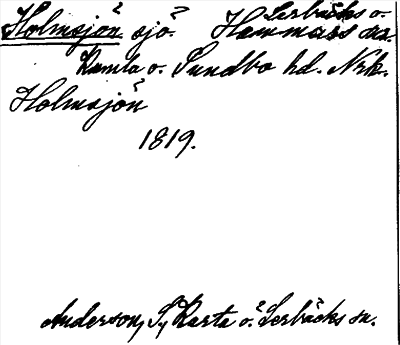 Holmsjön sjö? Lerbäcks o.
Hammars snr.
Kumla o. Sundbo hd. Nrk.
Holmsjön
1819.
Anderson, S, Karta ö. Lerbäcks sn.